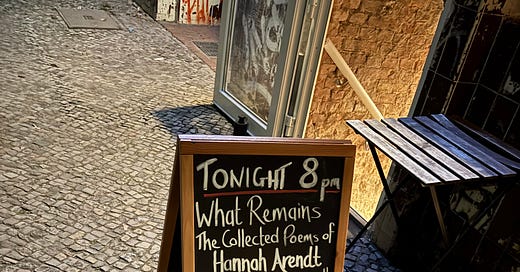 TONIGHT 8 pm
What Remains
The Collected Poems of
Hannah Arendt